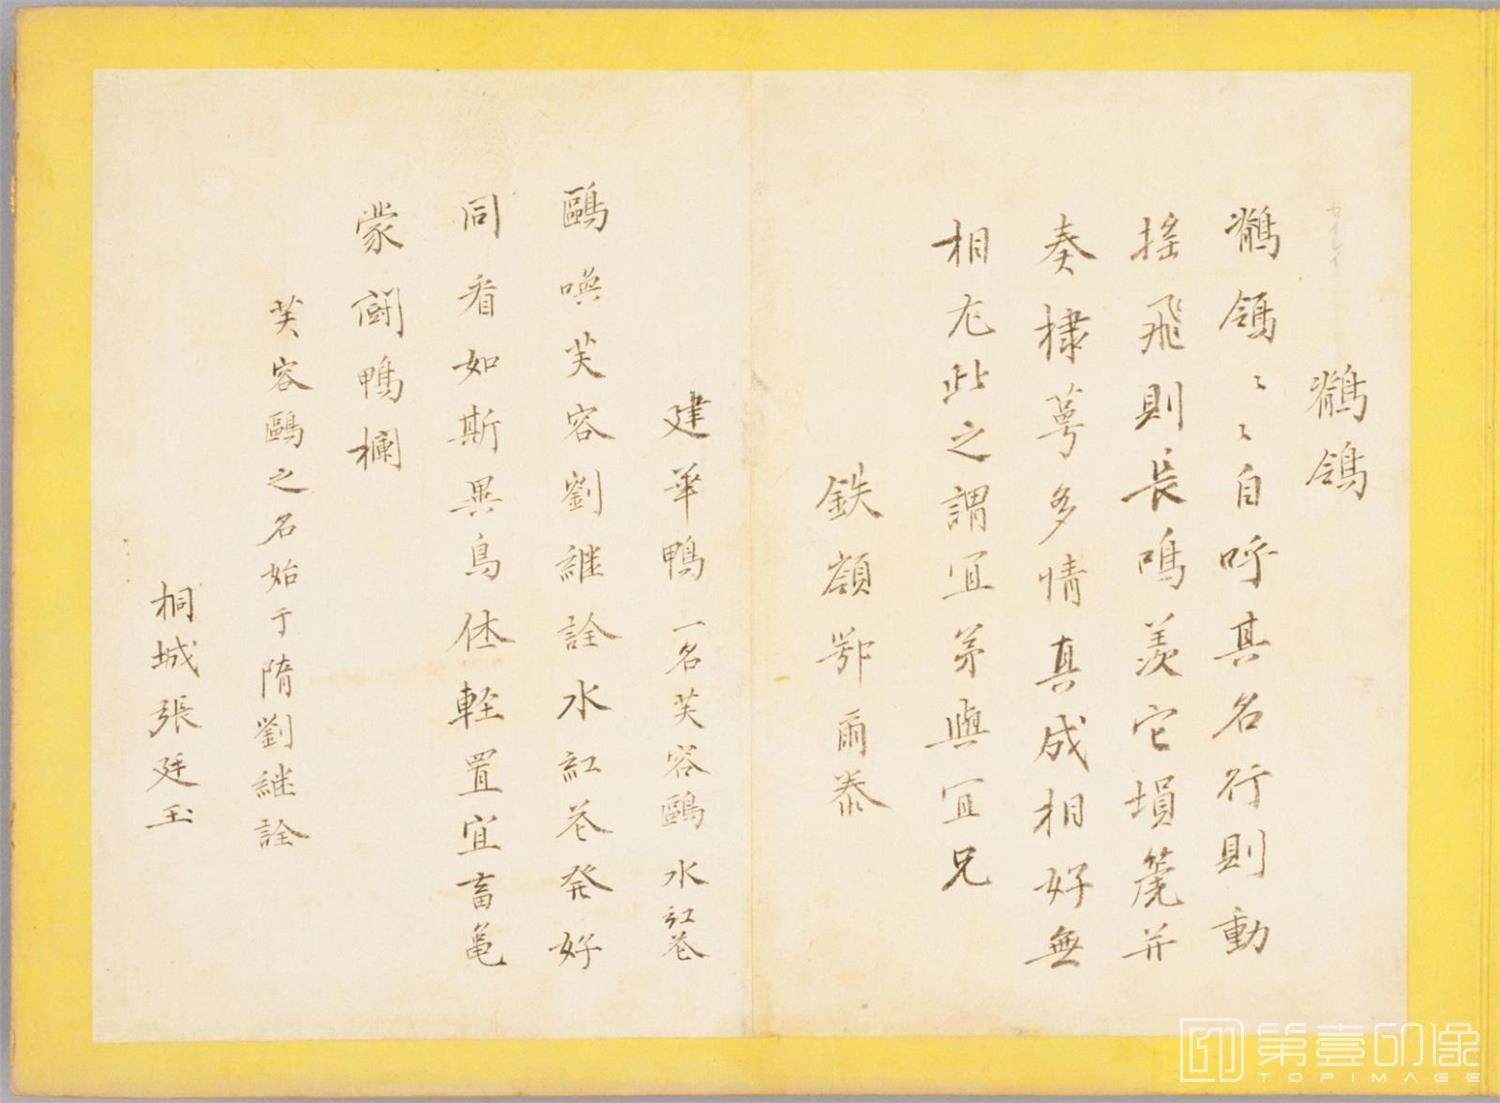 鶺鴒
鶺鴒〻〻自呼其名行則動
搖飛則長鳴羨它塤篪并
奏棣萼多情真成相好無
相尤此之謂宜弟與宜兄
鉄嶺鄂爾泰
建華鴨一名芙容鷗水紅花
鷗喚芙容劉継詮水紅花発好
同看如斯異鳥体軽置宜畜亀
蒙鬪鴨欄
芙容鷗之名始于隋劉継詮
桐城張廷玉
第壹印像
TOPIMAGE